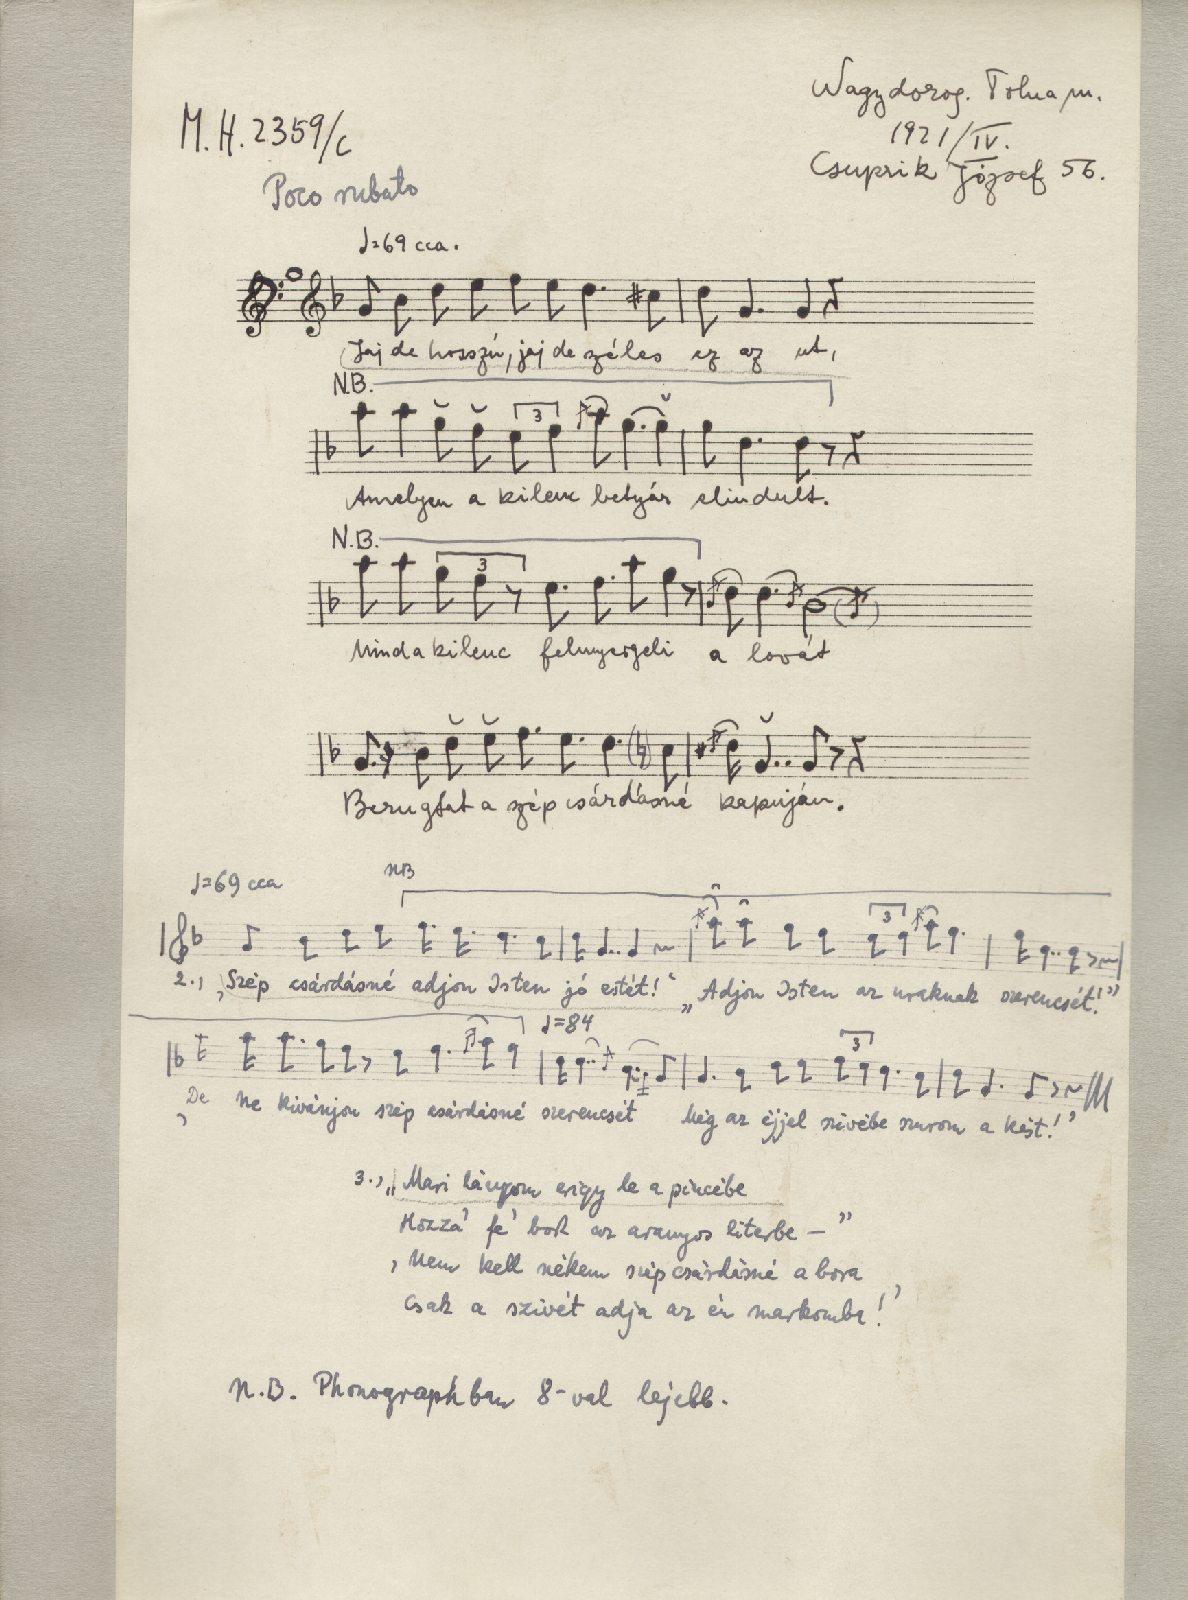 Nagydorog. Tolna m.
M.H. 2359/c
1921/IV.
Csuprik József 56.
Poco rubato
♩=69 cca.
Jaj de hosszú, jaj de széles ez az ut,
N.B.
3
Amelyen a kilenc betyár elindult.
N.B.
3
Mind a kilenc felnyergeli a lovát
Berugtat a szép csárdásné kapuján.
♩=69 cca
NB
3
2., ‚Szép csárdásné adjon Isten jó estét!‘ „Adjon Isten az uraknak szerencsét!”
♩=84
3
‚De Ne kivánjon szép csárdásné szerencsét Még az éjjel szivébe szurom a kést!’
3., „Mari lányom erigy le a pincébe
Hozzá' fé' bort az aranyos literbe –”
‚Nem kell nékem szép csárdásné a bora
Csak a szivét adja az én markomba!’
N.B. Phonographban 8-val lejebb.